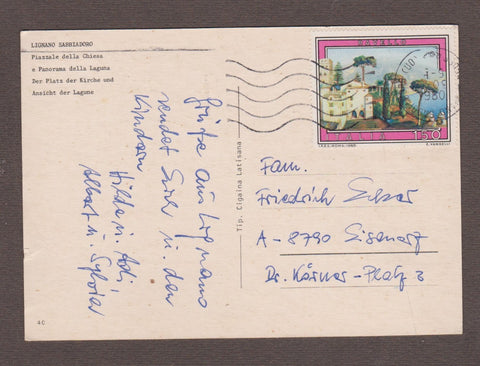 LIGNANO SABBIADORO
Piazzale della Chiesa
e Panorama della Laguna
Der Platz der Kirche und
Ansicht der Lagune
Grüße aus Lignano
sendet Euch u. den
Kindern
Hilde u. Adi
Albert u. Sylvia
4C
Tip. Cigaina Latisana
RAVELLO
ITALIA 150
I.P.Z.S.-ROMA-1980
E. VANGELLI
1980
Fam.
Friedrich
A - 8790 Eisenerz
Dr. Körner - Platz 2